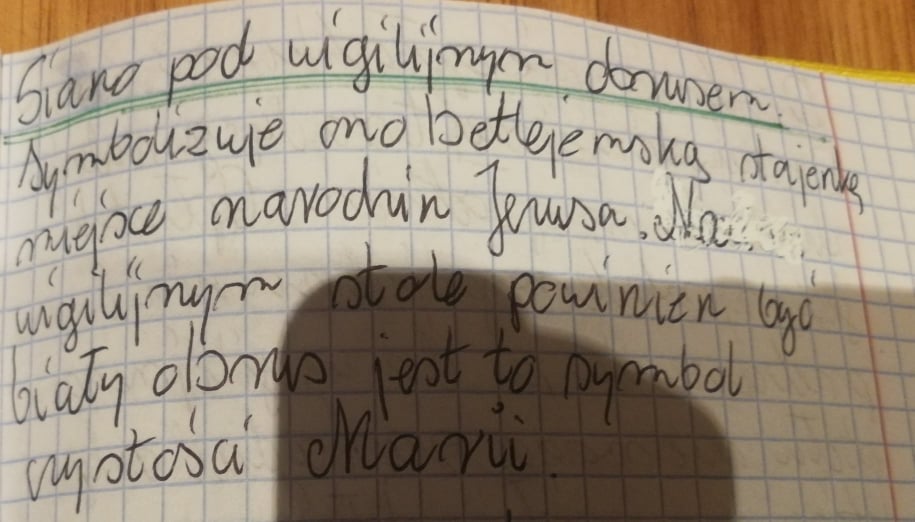 Siano pod wigilijnym obrusem.
Symbolizuje ono betlejemską stajenkę
miejsce narodzin Jezusa. Na
wigilijnym stole powinien być
biały obrus jest to symbol
czystości Marii.